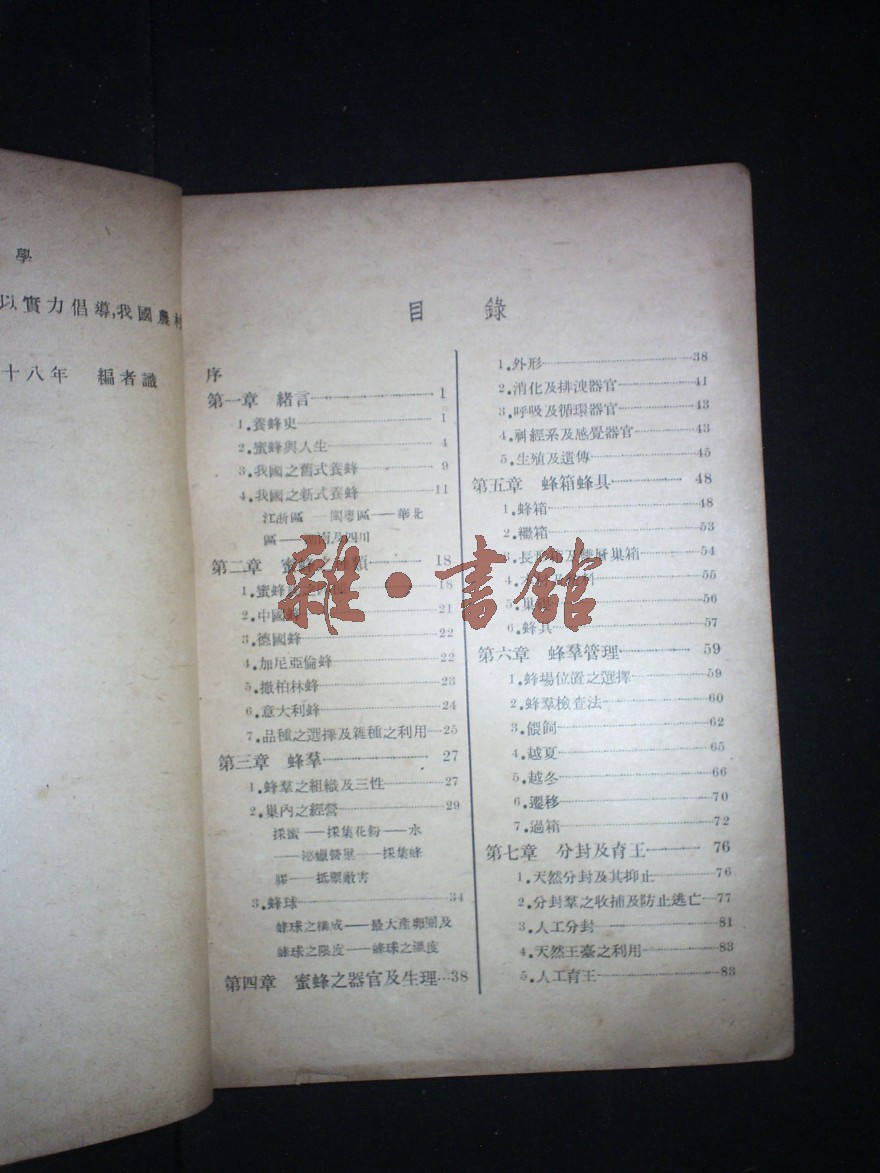 學
以實力倡導,我國農村
十八年　編者識
目　錄
序
第一章　緒言 1
1.養蜂史 1
2.蜜蜂與人生 4
3.我國之舊式養蜂 9
4.我國之新式養蜂 11
江浙區——閩粵區——華北
區——南及四川
第二章　蜜蜂之種類 18
1.蜜蜂 18
2.中國蜂 21
3.德國蜂 22
4.加尼亞倫蜂 22
5.撒柏林蜂 23
6.意大利蜂 24
7.品種之選擇及雜種之利用 25
第三章　蜂羣 27
1.蜂羣之組織及三性 27
2.巢內之經營 29
採蜜——採集花粉——水
——泌蠟營巢——採集蜂
膠——抵禦敵害
3.蜂球 34
蜂球之構成——最大產卵圈及
蜂球之限度——蜂球之溫度
第四章　蜜蜂之器官及生理 38
1.外形 38
2.消化及排洩器官 41
3.呼吸及循環器官 43
4.神經系及感覺器官 43
5.生殖及遺傳 45
第五章　蜂箱蜂具 48
1.蜂箱 48
2.繼箱 53
3.長形箱及雙層巢箱 54
4. 55
5.巢 56
6.蜂具 57
第六章　蜂羣管理 59
1.蜂場位置之選擇 59
2.蜂羣檢查法 60
3.餵飼 62
4.越夏 65
5.越冬 66
6.遷移 70
7.過箱 72
第七章　分封及育王 76
1.天然分封及其抑止 76
2.分封羣之收捕及防止逃亡 77
3.人工分封 81
4.天然王臺之利用 83
5.人工育王 83
雜·書館